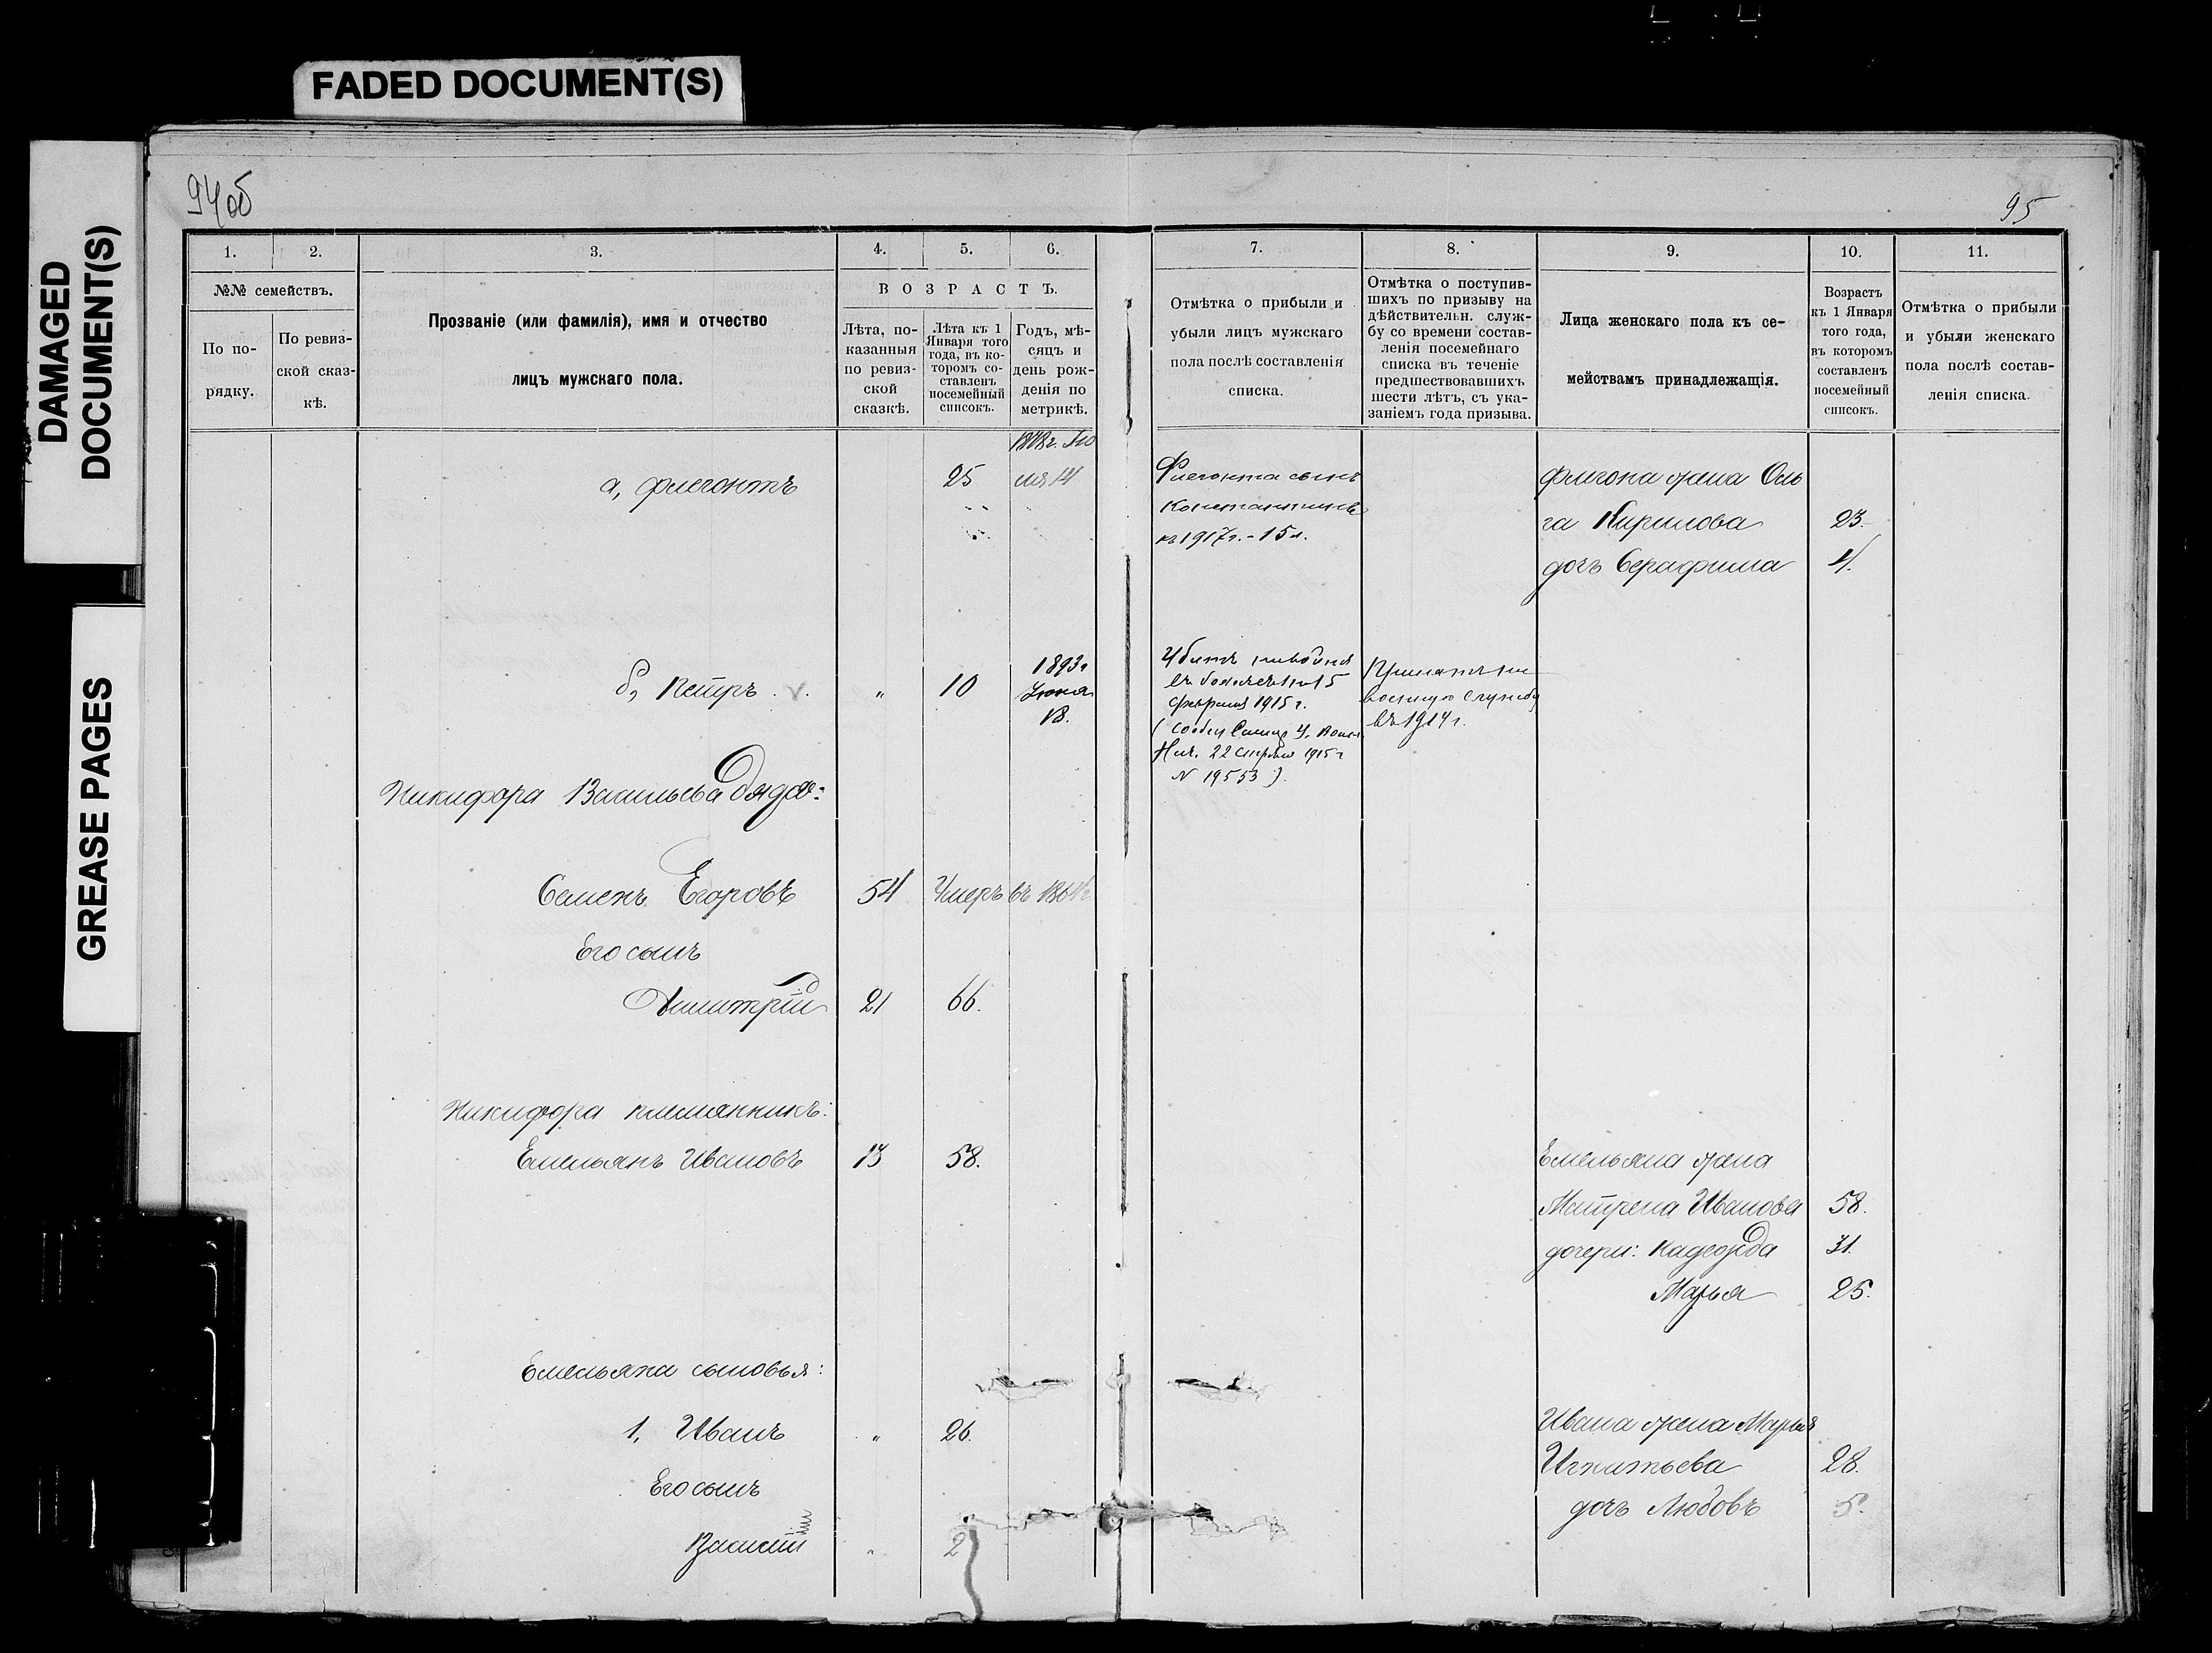 FADED DOCUMENT(S)
DAMAGED
DOCUMENT(S)
GREASE PAGES
94об
95
1.
2.
3.
4.
5.
6.
7.
8.
9.
10.
11.
№№ семействъ.
По по-
рядку.
По ревиз-
ской сказ-
кѣ.
Прозваніе (или фамилія), имя и отчество
лицъ мужскаго пола.
ВОЗРАСТЪ.
Лѣта, по-
казанныя
по ревиз-
ской
сказкѣ.
Лѣта къ 1
Января того
года, въ ко-
торомъ со-
ставленъ
посемейный
списокъ.
Годъ, мѣ-
сяцъ и
день рож-
денія по
метрикѣ.
Отмѣтка о прибыли и
убыли лицъ мужскаго
пола послѣ составленія
списка.
Отмѣтка о поступив-
шихъ по призыву на
дѣйствительн. служ-
бу со времени состав-
ленія посемейнаго
списка въ теченіе
предшествовавшихъ
шести лѣтъ, съ ука-
заніемъ года призыва.
Лица женскаго пола къ се-
мействамъ принадлежащія.
Возрастъ
къ 1 Января
того года,
въ которомъ
составленъ
посемейный
списокъ.
Отмѣтка о прибыли
и убыли женскаго
пола послѣ состав-
ленія списка.
а, Флегонтъ
25
Флегонта сынъ
Константинъ
къ 1917г. - 15 л.
Флегона жена Оль
га Кирилова
23.
дочь Серафима
4.
б, Петръ
"
10
1893г
Іюня
18.
Убитъ на войнѣ
въ бояхъ 15
февраля 1915 г.
22 1915 г
N 19553).
Принятъ на
военную службу
въ 1914 г.
Никифора Васильева дядя:
Семенъ Егоровъ
54
Умеръ въ
Его сынъ
Димитрій
21
66.
Никифора племянникъ:
Емельянъ Ивановъ
13
58.
Емельяна жена
Матрена Иванова
58.
дочери: Надежда
31.
Марья
25.
Емельяна сыновья:
1, Иванъ
"
26.
Ивана жена Марья
Игнатьева
28.
Его сынъ
дочь Любовь
5.
Василій
"
2